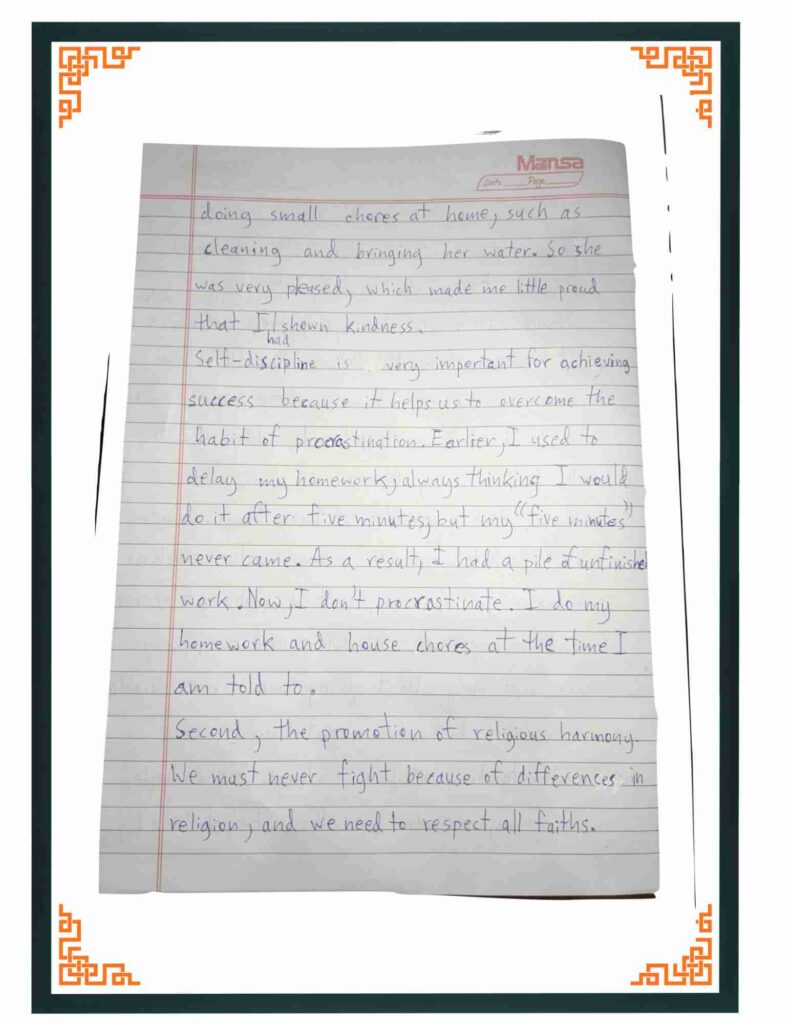 Mansa
Date Page
doing small chores at home, such as
cleaning and bringing her water. So she
was very pleased, which made me little proud
that I had shown kindness.
Self-discipline is very important for achieving
success because it helps us to overcome the
habit of procrastination. Earlier, I used to
delay my homework, always thinking I would
do it after five minutes, but my "five minutes"
never came. As a result, I had a pile of unfinished
work. Now, I don't procrastinate. I do my
homework and house chores at the time I
am told to.
Second, the promotion of religious harmony.
We must never fight because of differences in
religion, and we need to respect all faiths.